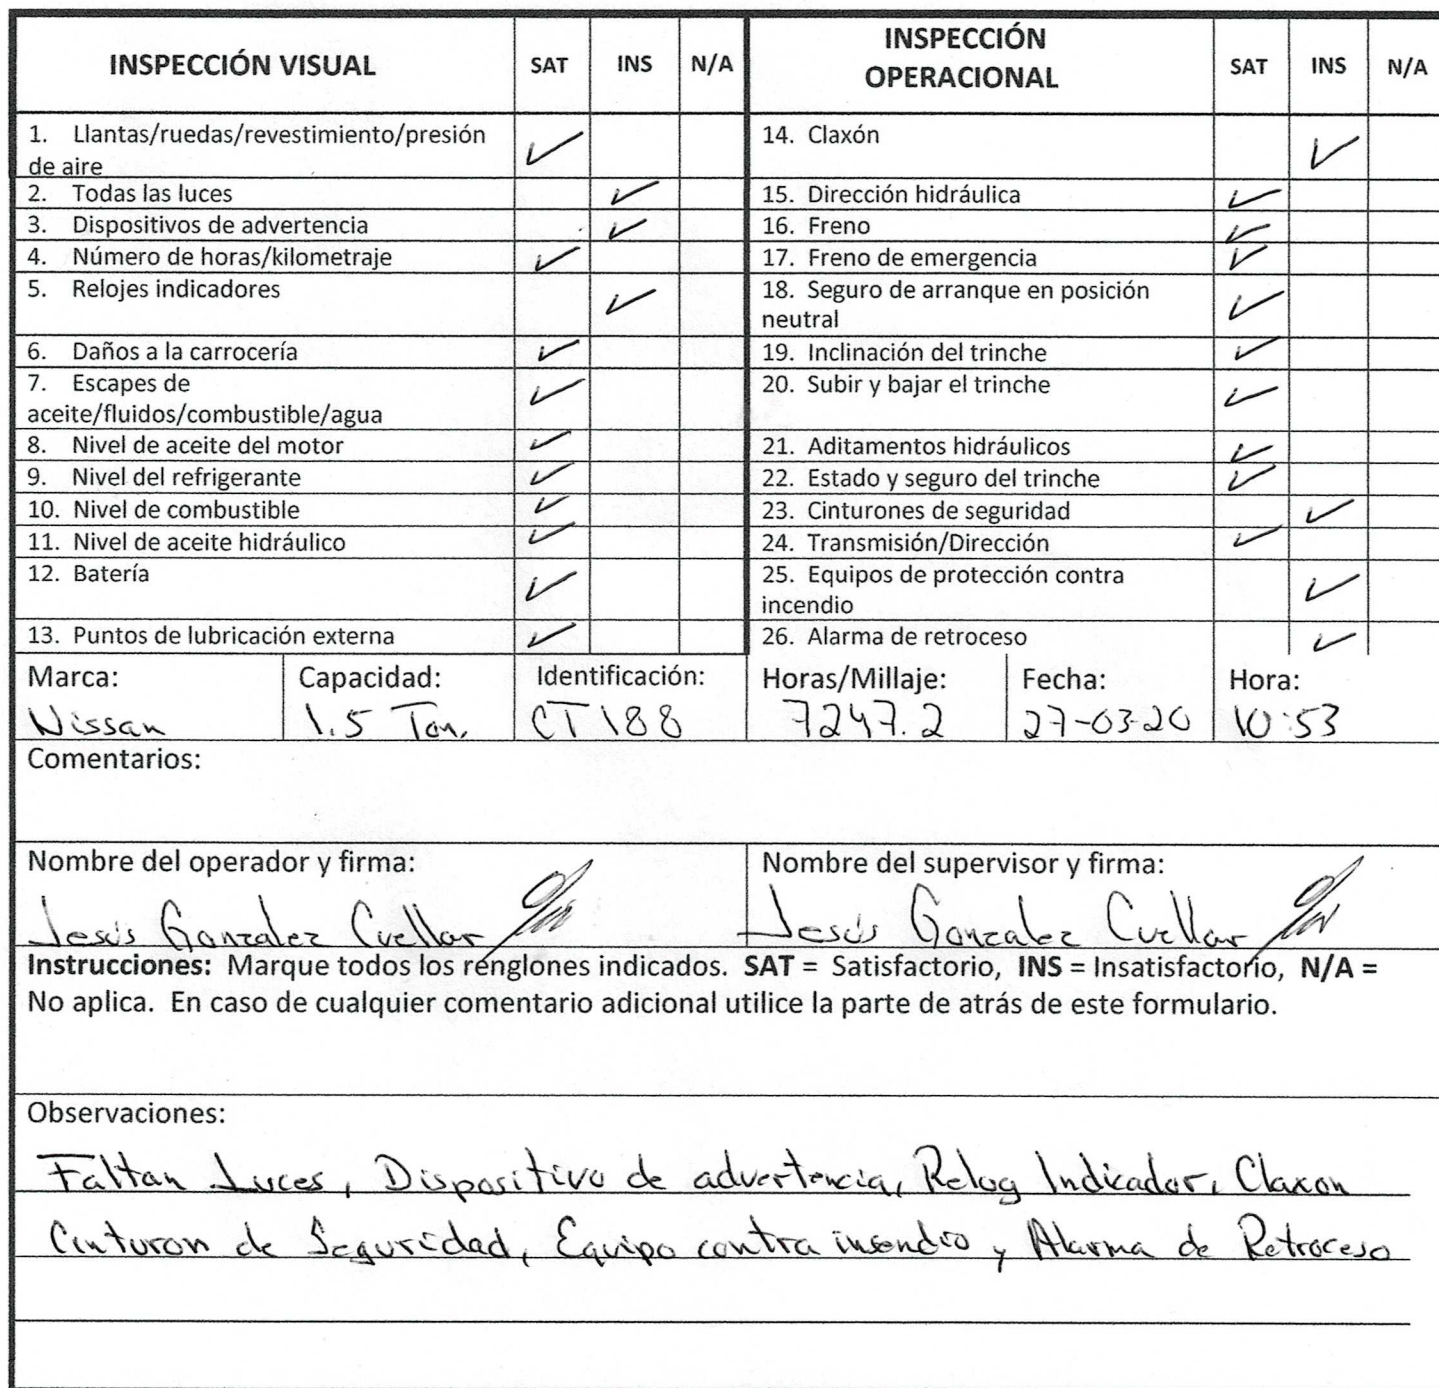 INSPECCIÓN VISUAL SAT INS N/A INSPECCIÓN OPERACIONAL SAT INS N/A
1. Llantas/ruedas/revestimiento/presión de aire ✓ 14. Claxón ✓
2. Todas las luces ✓ 15. Dirección hidráulica ✓
3. Dispositivos de advertencia ✓ 16. Freno ✓
4. Número de horas/kilometraje ✓ 17. Freno de emergencia ✓
5. Relojes indicadores ✓ 18. Seguro de arranque en posición neutral ✓
6. Daños a la carrocería ✓ 19. Inclinación del trinche ✓
7. Escapes de aceite/fluidos/combustible/agua ✓ 20. Subir y bajar el trinche ✓
8. Nivel de aceite del motor ✓ 21. Aditamentos hidráulicos ✓
9. Nivel del refrigerante ✓ 22. Estado y seguro del trinche ✓
10. Nivel de combustible ✓ 23. Cinturones de seguridad ✓
11. Nivel de aceite hidráulico ✓ 24. Transmisión/Dirección ✓
12. Batería ✓ 25. Equipos de protección contra incendio ✓
13. Puntos de lubricación externa ✓ 26. Alarma de retroceso ✓
Marca: Capacidad: Identificación: Horas/Millaje: Fecha: Hora:
Nissan 1.5 Ton. CT188 7247.2 27-03-20 10:53
Comentarios:
Nombre del operador y firma: Nombre del supervisor y firma:
Jesús Gonzalez Cuellar Jesús Gonzalez Cuellar
Instrucciones: Marque todos los renglones indicados. SAT = Satisfactorio, INS = Insatisfactorio, N/A =
No aplica. En caso de cualquier comentario adicional utilice la parte de atrás de este formulario.
Observaciones:
Faltan Luces, Dispositivo de advertencia, Relog Indicador, Claxon
Cinturon de Seguridad, Equipo contra insendio y Alarma de Retroceso